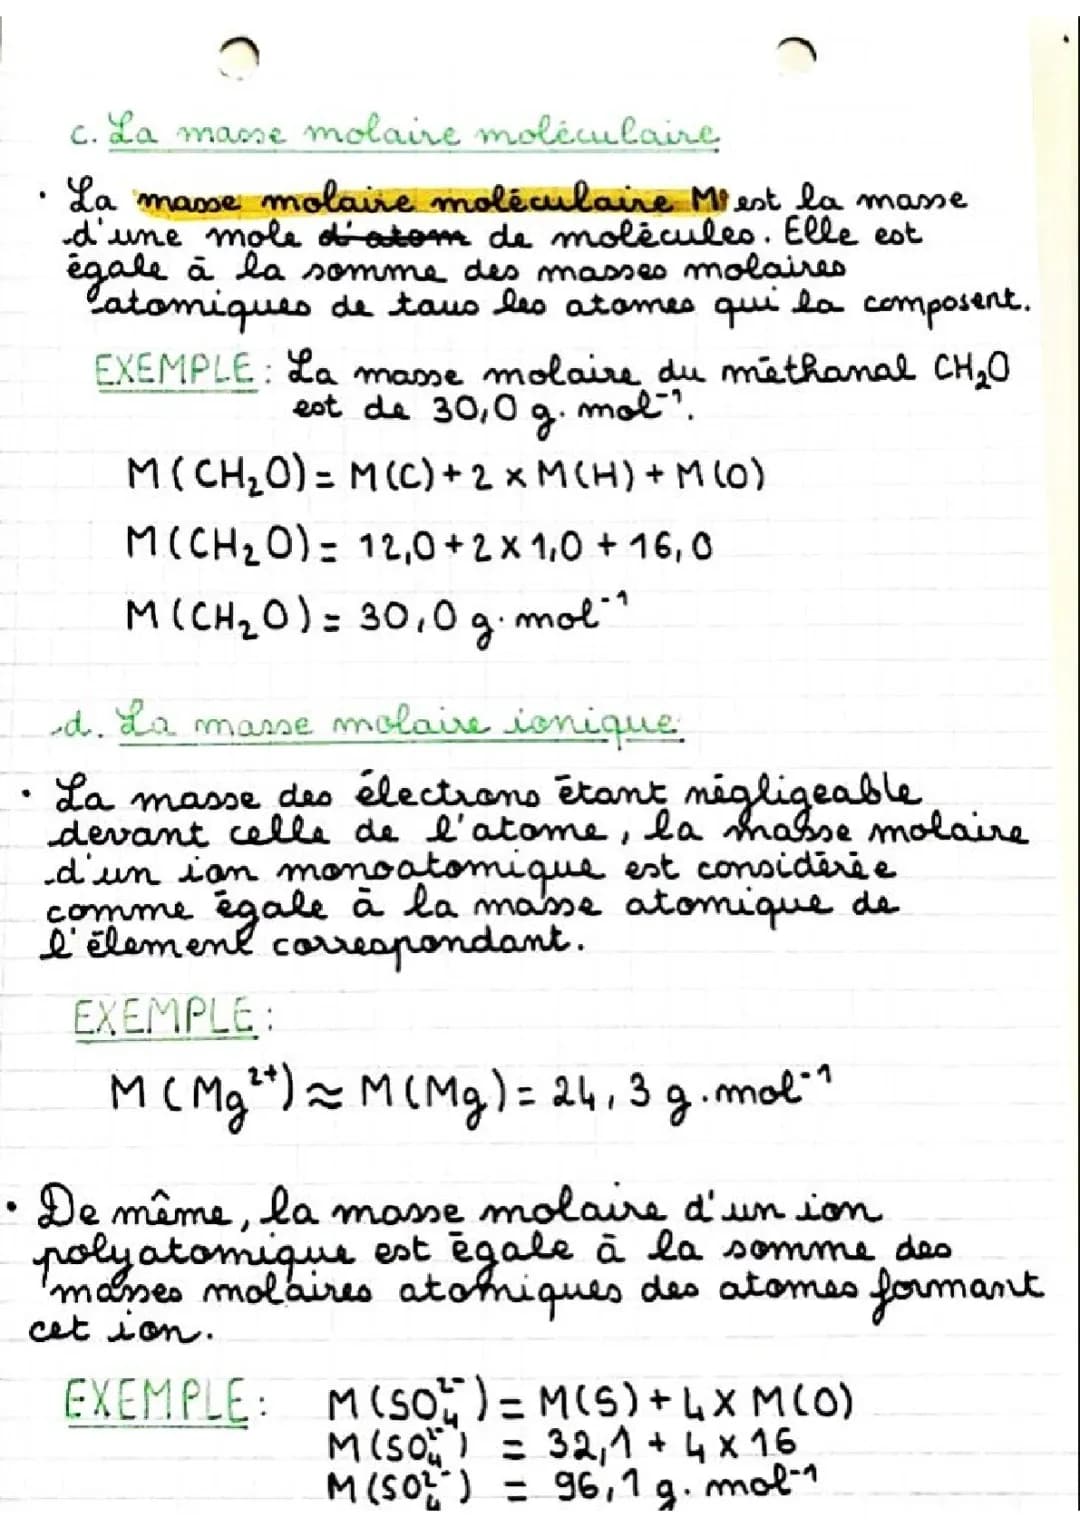 c. La masse molaire moléculaire
· La masse molaire moléculaire M est la masse
d'une mole d'atom de molécules. Elle est
égale à la somme des masses molaires
atomiques de tous les atomes qui la composent.
EXEMPLE : La masse molaire du méthanal CH₂O
est de 30,0 g. mol⁻¹.
M(CH₂O) = M(C) + 2 x M(H) + M(O)
M(CH₂O) = 12,0 + 2 x 1,0 + 16,0
M(CH₂O) = 30,0 g. mol⁻¹
d. La masse molaire ionique
· La masse des électrons étant négligeable
devant celle de l'atome, la masse molaire
d'un ion monoatomique est considérée
comme égale à la masse atomique de
l'élement correspondant.
EXEMPLE :
M(Mg²⁺) ≈ M(Mg) = 24,3 g. mol⁻¹
· De même, la masse molaire d'un ion
polyatomique est égale à la somme des
masses molaires atomiques des atomes formant
cet ion.
EXEMPLE : M(SO₄²⁻) = M(S) + 4 x M(O)
M(SO₄²⁻) = 32,1 + 4 x 16
M(SO₄²⁻) = 96,1 g. mol⁻¹